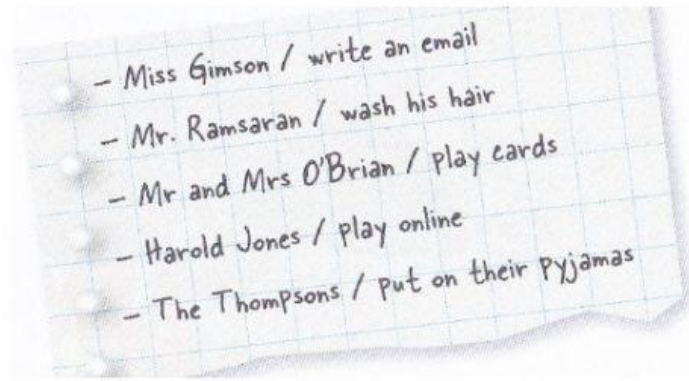 - Miss Gimson / write an email
- Mr. Ramsaran / wash his hair
- Mr and Mrs O'Brian / play cards
- Harold Jones / play online
- The Thompsons / put on their pyjamas